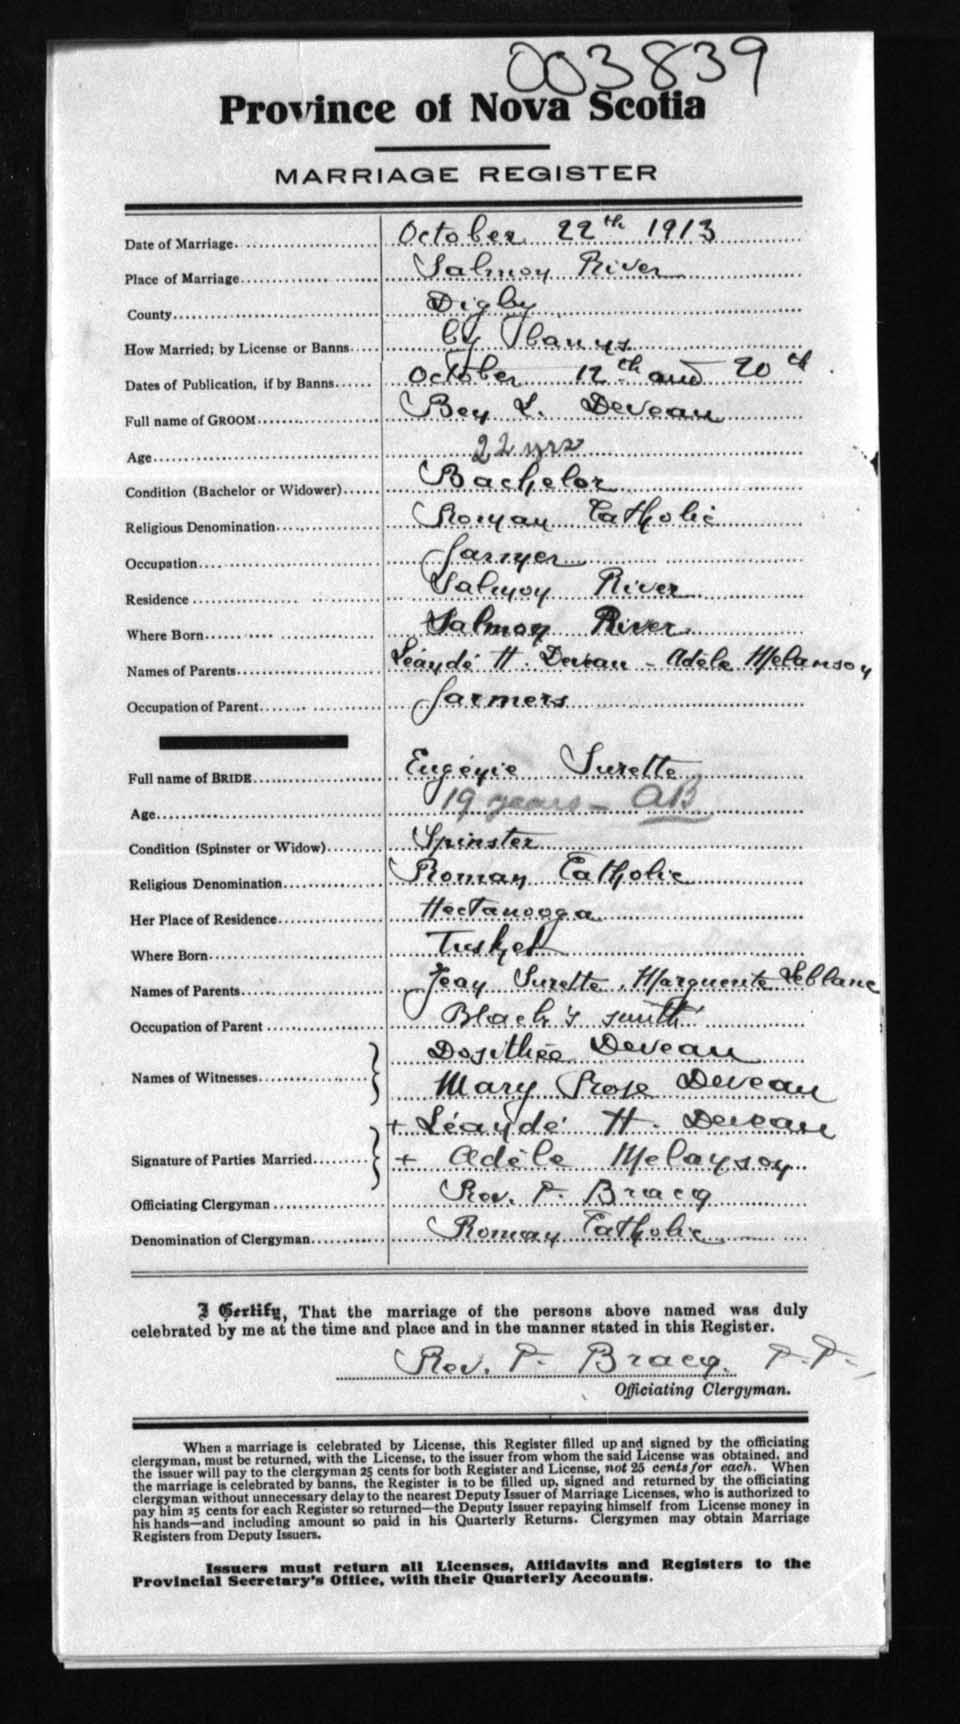 003839
Province of Nova Scotia
MARRIAGE REGISTER
Date of Marriage. October 22th 1913
Place of Marriage. Salmon River
County. Digby
How Married; by License or Banns. by banns
Dates of Publication, if by Banns. October 12th and 20th
Full name of GROOM. Ben L. Deveau
Age. 22 yrs
Condition (Bachelor or Widower). Bachelor
Religious Denomination. Roman Catholic
Occupation. farmer
Residence Salmon River
Where Born. Salmon River
Names of Parents. Léandé H. Deveau - Adèle Melanson
Occupation of Parent. farmers
Full name of BRIDE. Eugénie Surette
Age. 19 years - AB
Condition (Spinster or Widow). Spinster
Religious Denomination. Roman Catholic
Her Place of Residence. Hectanooga
Where Born. Tusket
Names of Parents. Jean Surette, Marguerite Leblanc
Occupation of Parent Black's smith
Names of Witnesses. Dosithée Deveau
Mary Rose Deveau
Signature of Parties Married. + Léandé H. Deveau
+ Adèle Melanson
Officiating Clergyman Rev. P. Bracq
Denomination of Clergyman. Roman Catholic
I Certify, That the marriage of the persons above named was duly
celebrated by me at the time and place and in the manner stated in this Register.
Rev. P. Bracq. P.P.
Officiating Clergyman.
When a marriage is celebrated by License, this Register filled up and signed by the officiating
clergyman, must be returned, with the License, to the issuer from whom the said License was obtained, and
the issuer will pay to the clergyman 25 cents for both Register and License, not 25 cents for each. When
the marriage is celebrated by banns, the Register is to be filled up, signed and returned by the officiating
clergyman without unnecessary delay to the nearest Deputy Issuer of Marriage Licenses, who is authorized to
pay him 25 cents for each Register so returned—the Deputy Issuer repaying himself from License money in
his hands—and including amount so paid in his Quarterly Returns. Clergymen may obtain Marriage
Registers from Deputy Issuers.
Issuers must return all Licenses, Affidavits and Registers to the
Provincial Secretary's Office, with their Quarterly Accounts.